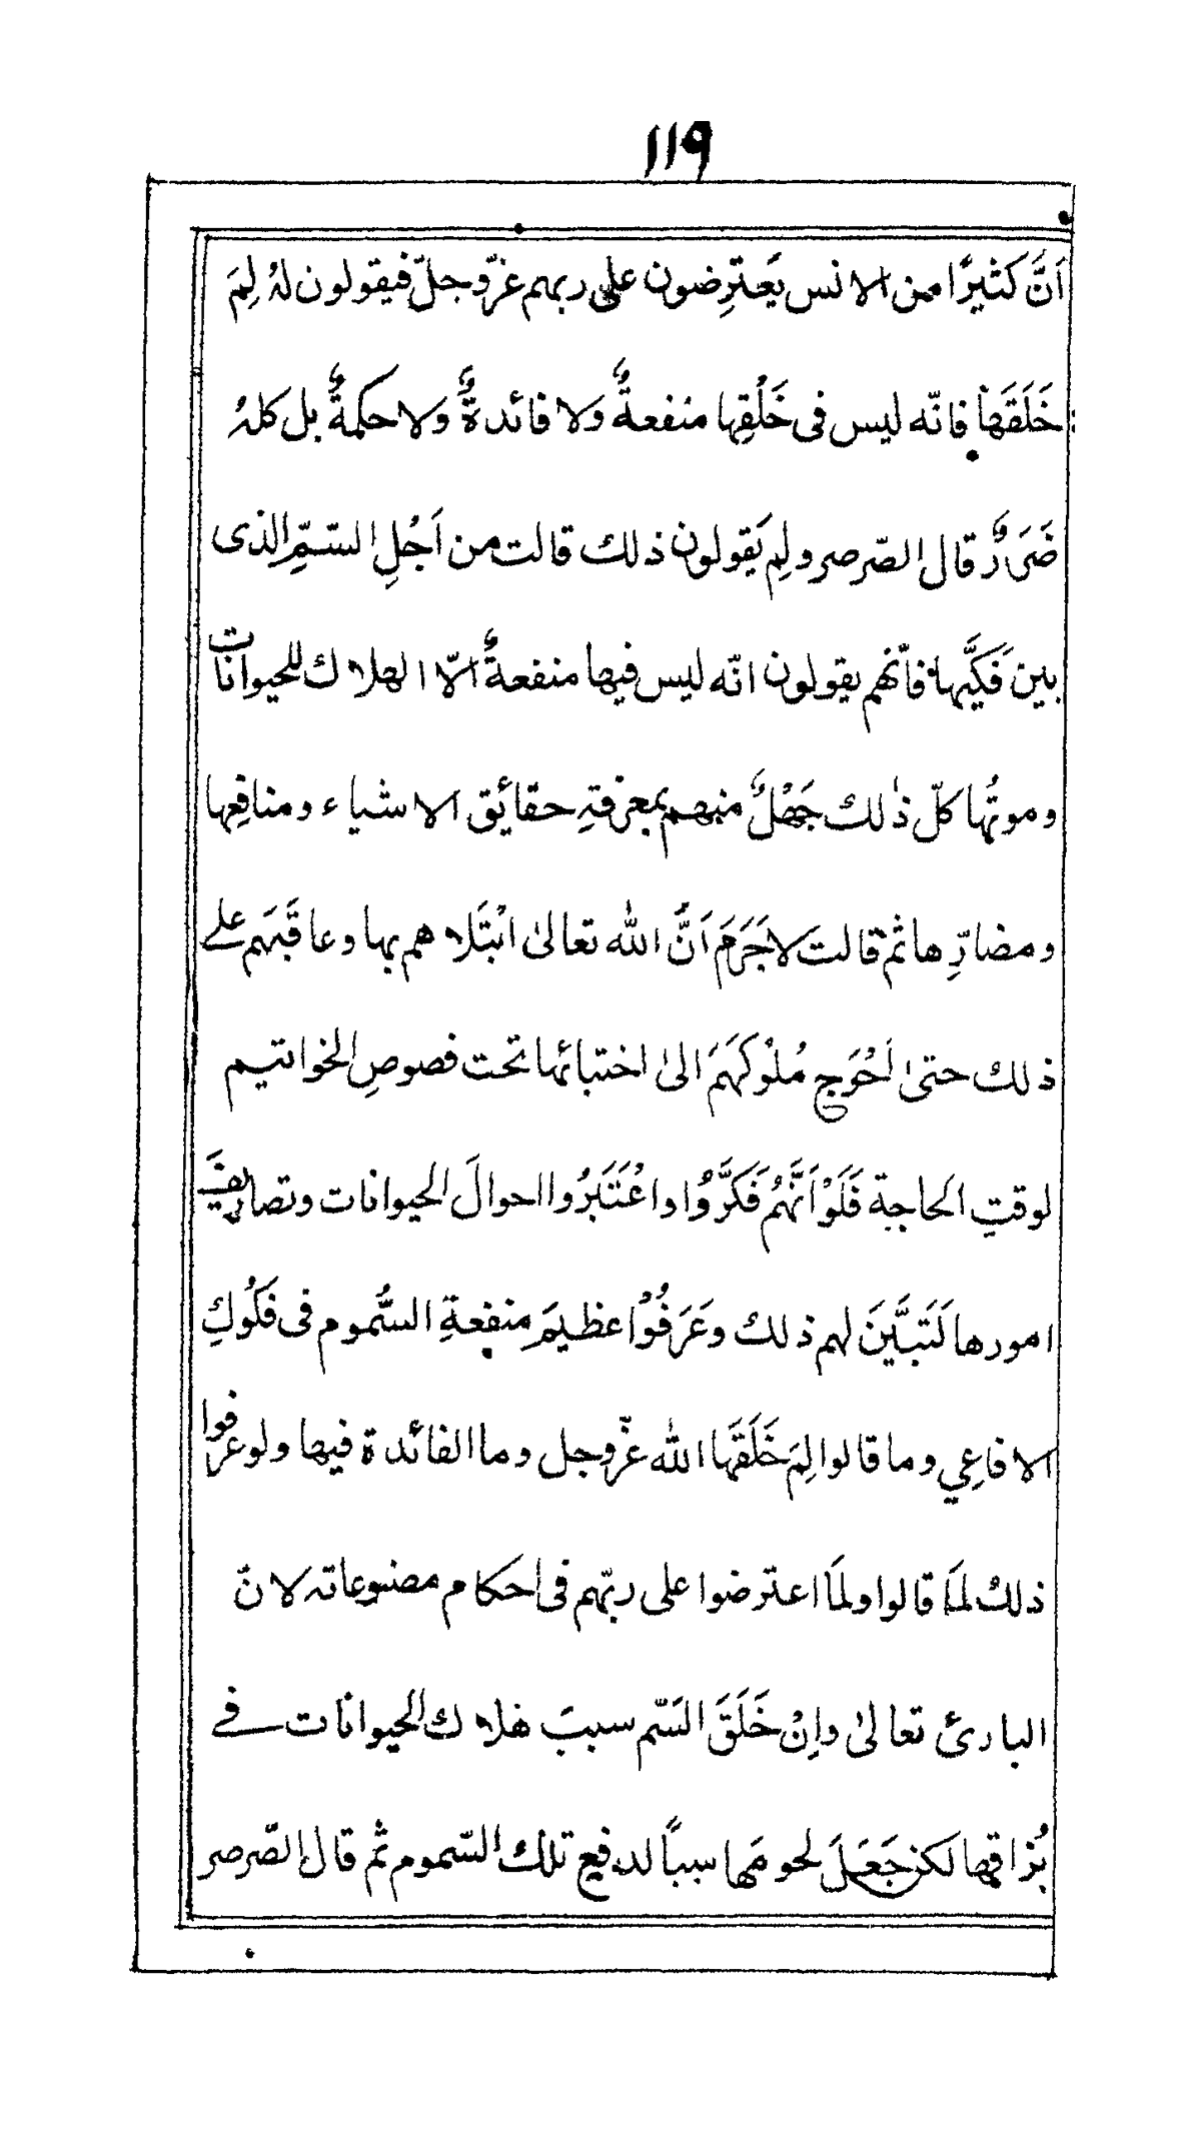 ١١٩
اَنَّ كثيرًا من الانس يَعترِضون على ربهم عزّوجلّ فيقولون لهٗ لِمَ
خَلَقَهَا فانّه ليس فى خَلْقِها منفعةٌ ولا فائدةٌ ولا حكمةٌ بل كلهٗ
ضَرَرٌ قال الصّرصر ولِم يَقولون ذلك قالت من اَجْلِ السّمِّ الذى
بين فَكَّيها فانّهم يقولون انّه ليس فيها منفعةٌ الّا الهلاك للحيوانات
وموتُها كلّ ذٰلك جَهْلٌ منهم بمعرفةِ حقائق الاشياء ومنافِعِها
ومضارِّها ثم قالت لاجَرَمَ اَنَّ الله تعالىٰ ابْتَلاهم بها وعاقَبَهم علے
ذلك حتىٰ اَحْوَج مُلُوكَهَمَ الىٰ اختبائها تحت فصوصِ الخواتيم
لوقتِ الحاجة فَلَوْ اَنَّهُم فَكَّرُوا واعْتَبَرُوا احوالَ الحيوانات وتصاريفَ
امورها لَتَبَيَّنَ لهم ذلك وعَرَفُوْا عظيمَ منفعةِ السُّموم فى فُكُوكِ
الافاعِي وما قالوا لِمَ خَلَقَهَا الله عزّوجل وما الفائدة فيها ولو عرفوا
ذلك لمَا قالوا ولمَا اعترضوا على ربّهم فى احكام مصنوعاته لانّ
البارئ تعالىٰ واِنْ خَلَقَ السَمّ سببَ هلاك الحيوانات فے
بُزاقها لكن جَعَلَ لحومَها سببًا لدفعِ تلك السّموم ثم قال الصّرصر